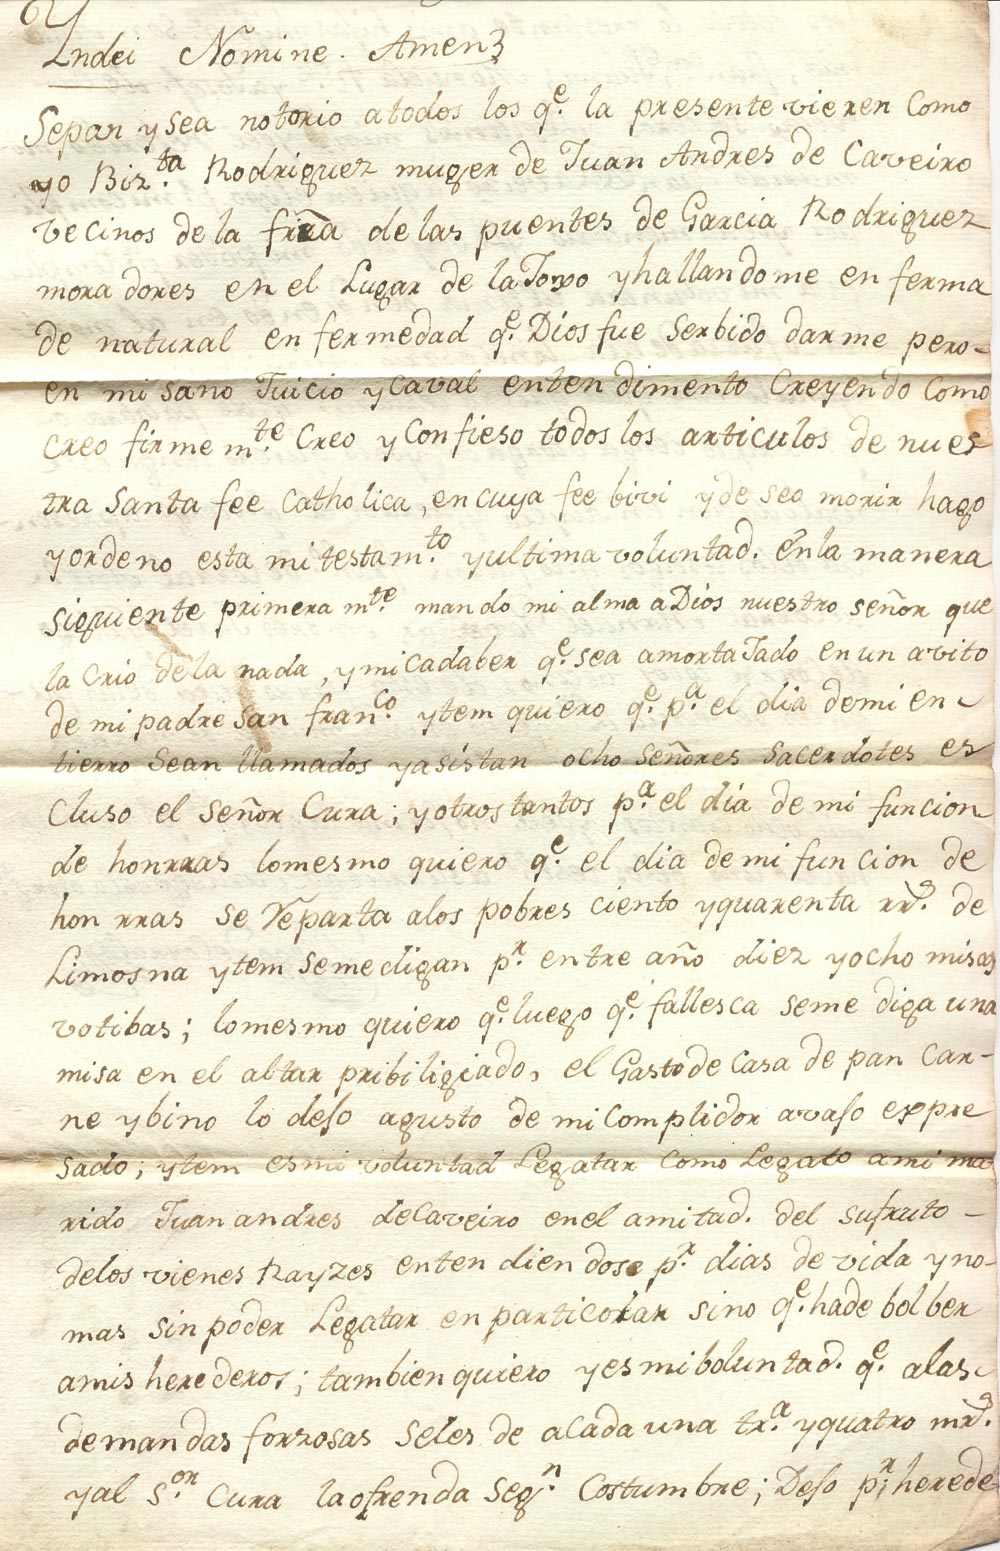 Yndei Nomine. Amen
Sepan y sea notorio atodos los q.e la presente vieren Como
yo Bix.ta Rodriguez muger de Juan Andres de Caveiro
vecinos de la frra delas puentes de Garcia Rodriguez
mora dores en el Lugar de la Toxo y hallandome en ferma
de natural en fermedad q.e Dios fue serbido darme pero-
en mi sano Juicio y caval enten dimento Creyendo Como
Creo firme m.te Creo y Confieso todos los articulos de nues
tra santa fee Catholica, en cuya fee bivi y de seo morir hago
y ordeno esta mi testam.to y ultima voluntad. en la manera
siguiente primera m.te mando mi alma a Dios nuestro señor que
la Crio de la nada, y mi cadaber q.e sea amortaJado en un avito
de mi padre san fran.co ytem quiero q.e p.a el dia demi en-
tierro sean llamados y asistan ocho señores sacerdotes es
Cluso el señor Cura; y otros tantos p.a el dia de mi funcion
de honrras lo mesmo quiero q.e el dia demi funcion de
hon rras se Reparta alos pobres ciento y quarenta rr.s de
Limosna ytem semedigan p.r entre año diez y ocho misas
votibas; lomesmo quiero q.e luego q.e fallesca seme diga una
misa en el altar pribiligiado, el Gasto de Casa de pan Car-
ne y bino lo deso agusto de mi Complidor avaso expre
sado; ytem es mi voluntad Legatar Como Legato ami ma
rido Juan andres de Caveiro en el amitad. del sufruto -
delos vienes Rayzes enten diendose p.r dias de vida y no-
mas sin poder Legatar en particolar sino q.e hade bolber
amis herederos; tambien quiero y es mi boluntad. q.e alas-
demandas forzosas seles de acada una tr.a y quatro mr.s
y al s.or Cura la ofrenda seg.n Costumbre; Deso p.r herede